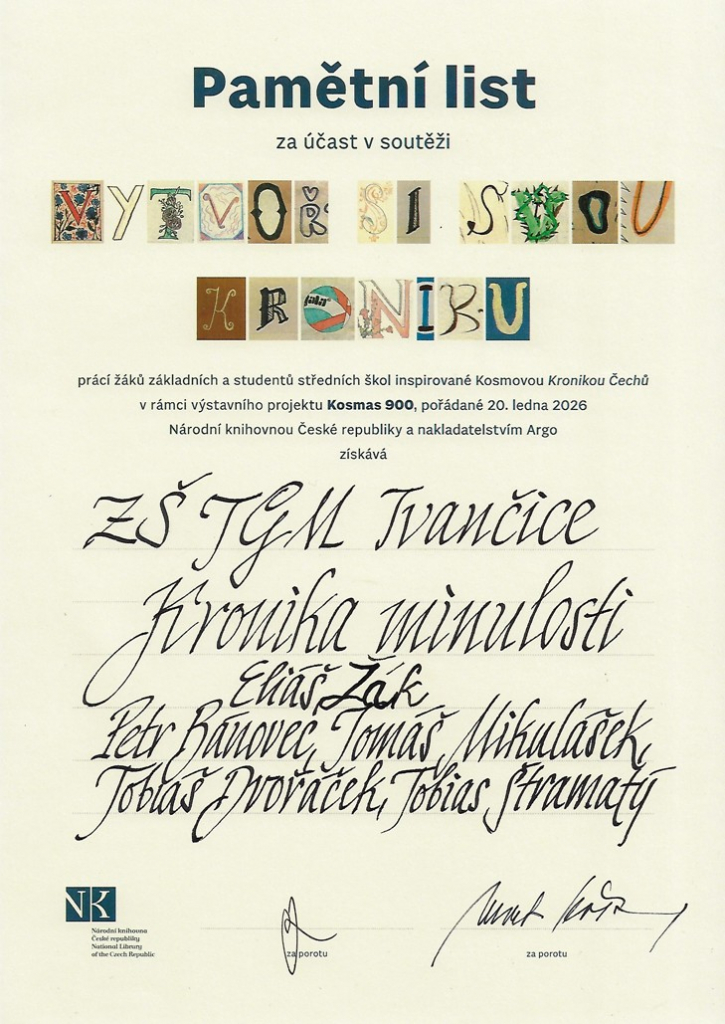 Pamětní list
za účast v soutěži
VYTVOŘ SI SVOU
KRONIKU
prácí žáků základních a studentů středních škol inspirované Kosmovou Kronikou Čechů
v rámci výstavního projektu Kosmas 900, pořádané 20. ledna 2026
Národní knihovnou České republiky a nakladatelstvím Argo
získává
ZŠ TGM Ivančice
Kronika minulosti
Eliáš Žák
Petr Bánovec, Tomáš Mikulášek,
Tobiáš Dvořáček, Tobias Štramatý
NK
Národní knihovna
České republiky
National Library
of the Czech Republic
za porotu
za porotu